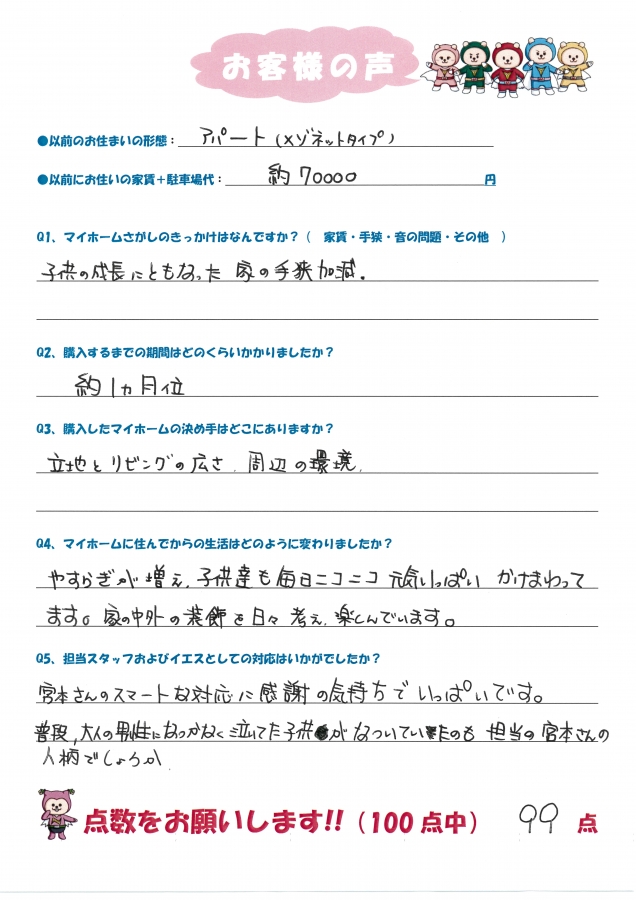 お客様の声
●以前のお住まいの形態： アパート（メゾネットタイプ）
●以前にお住いの家賃＋駐車場代： 約70000 円
Q1、マイホームさがしのきっかけはなんですか？（　家賃・手狭・音の問題・その他　）
子供の成長にともなった 家の手狭加減。
Q2、購入するまでの期間はどのくらいかかりましたか？
約1ヵ月位
Q3、購入したマイホームの決め手はどこにありますか？
立地とリビングの広さ、周辺の環境、
Q4、マイホームに住んでからの生活はどのように変わりましたか？
やすらぎが増え、子供達も毎日ニコニコ 元気いっぱい かけまわって
ます。家の中外の装飾を日々考え、楽しんでいます。
Q5、担当スタッフおよびイエスとしての対応はいかがでしたか？
宮本さんのスマートな対応に感謝の気持ちでいっぱいです。
普段、大人の男性になつかなく泣いてた子供がなついていたのも 担当の宮本さんの
人柄でしょうか
点数をお願いします!!（100点中） 99 点